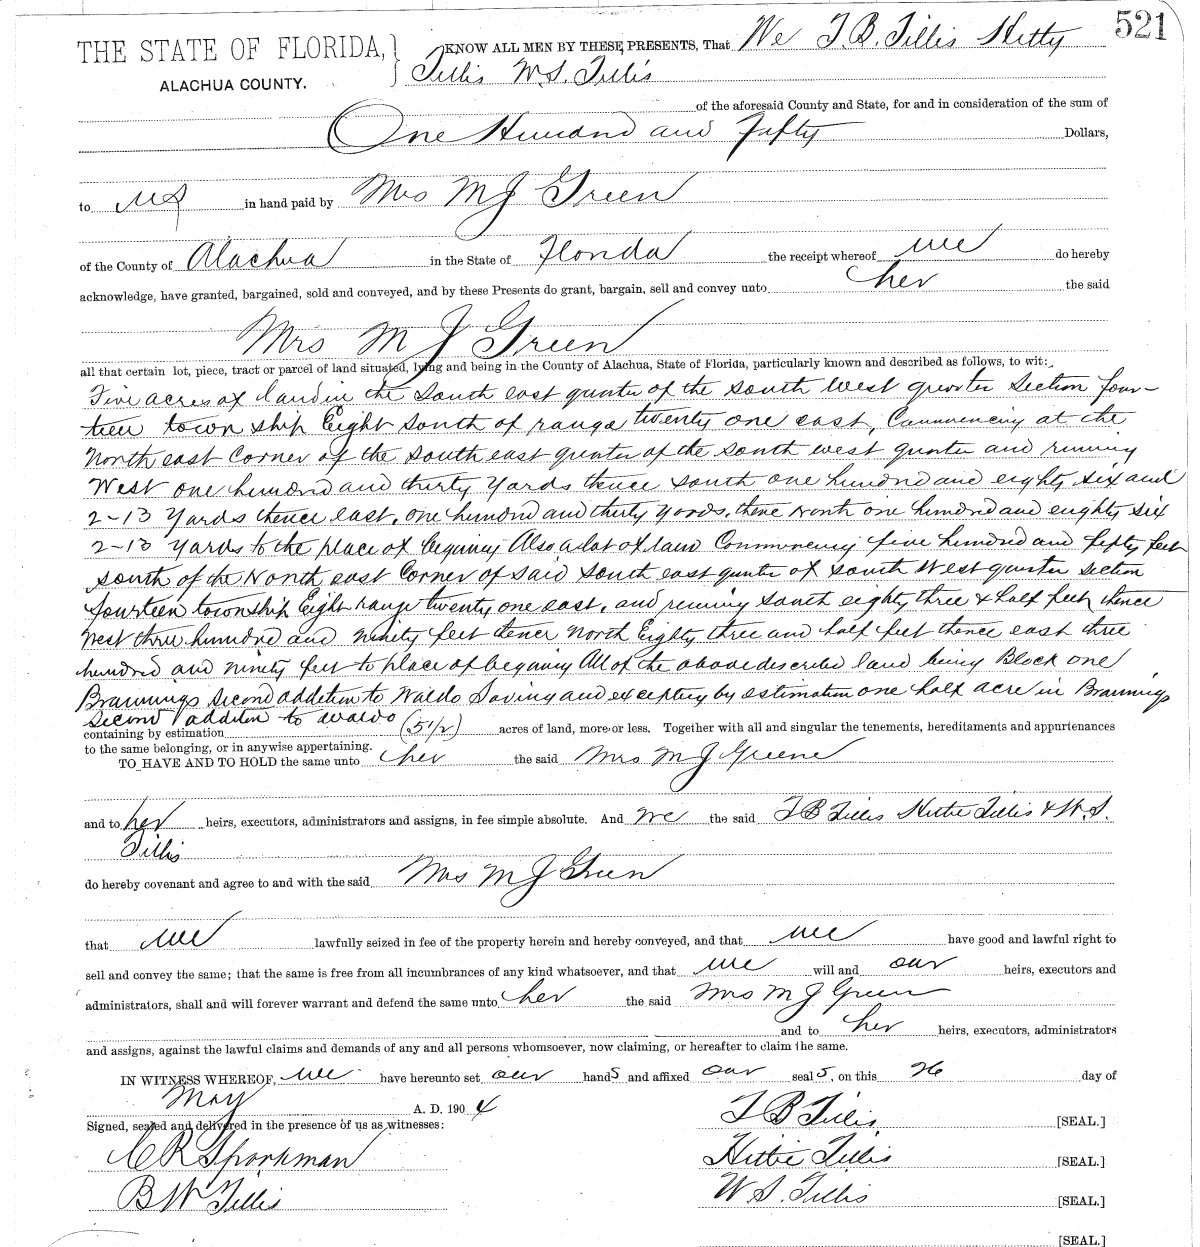 521
THE STATE OF FLORIDA,
ALACHUA COUNTY.
KNOW ALL MEN BY THESE PRESENTS, That We T. B. Tillis Hitty
Tillis W. S. Tillis
of the aforesaid County and State, for and in consideration of the sum of
One Hundred and Fifty Dollars,
to us in hand paid by Mrs M J Green
of the County of Alachua in the State of Florida the receipt whereof we do hereby
acknowledge, have granted, bargained, sold and conveyed, and by these Presents do grant, bargain, sell and convey unto her the said
Mrs M J Green
all that certain lot, piece, tract or parcel of land situated, lying and being in the County of Alachua, State of Florida, particularly known and described as follows, to wit:
Five acres of land in the South east quarter of the South West quarter Section four-
teen town ship Eight South of range twenty one east, Commencing at the
North east Corner of the South east quarter of the South west quarter and running
West one hundred and thirty Yards thence South one hundred and eighty six and
2-13 Yards thence east, one hundred and thirty yards, thence North one hundred and eighty six
2-13 yards to the place of beginning Also a lot of land Commencing five hundred and fifty feet
South of the North east Corner of said South east quarter of South West quarter Section
fourteen township Eight range twenty one east, and running South eighty three & half feet thence
West three hundred and ninety feet thence North Eighty three and half feet thence east three
hundred and ninety feet to place of beginning All of the above described land being Block one
Brannings Second addition to Waldo Saving and excepting by estimation one half acre in Brannings
Second addition to Waldo
containing by estimation (5 1/2) acres of land, more or less. Together with all and singular the tenements, hereditaments and appurtenances
to the same belonging, or in anywise appertaining.
TO HAVE AND TO HOLD the same unto her the said Mrs M J Greene
and to her heirs, executors, administrators and assigns, in fee simple absolute. And we the said T B Tillis Hittie Tillis & W. S.
Tillis
do hereby covenant and agree to and with the said Mrs M J Green
that we lawfully seized in fee of the property herein and hereby conveyed, and that we have good and lawful right to
sell and convey the same; that the same is free from all incumbrances of any kind whatsoever, and that we will and our heirs, executors and
administrators, shall and will forever warrant and defend the same unto her the said Mrs M J Green
and to her heirs, executors, administrators
and assigns, against the lawful claims and demands of any and all persons whomsoever, now claiming, or hereafter to claim the same.
IN WITNESS WHEREOF, we have hereunto set our hands and affixed our seals, on this 26 day of
May A. D. 1904
Signed, sealed and delivered in the presence of us as witnesses:
T B Tillis [SEAL.]
C R Sparkman Hittie Tillis [SEAL.]
B W Tillis W. S. Tillis [SEAL.]
[SEAL.]